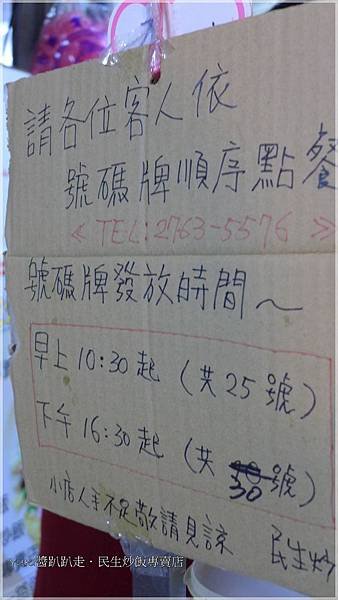 請各位客人依
號碼牌順序點餐
<< TEL:2763-5576 >>
號碼牌發放時間~
早上 10:30起 (共25號)
下午 16:30起 (共30號)
小店人手不足敬請見諒 民生炒
醬趴趴走·民生炒飯專賣店